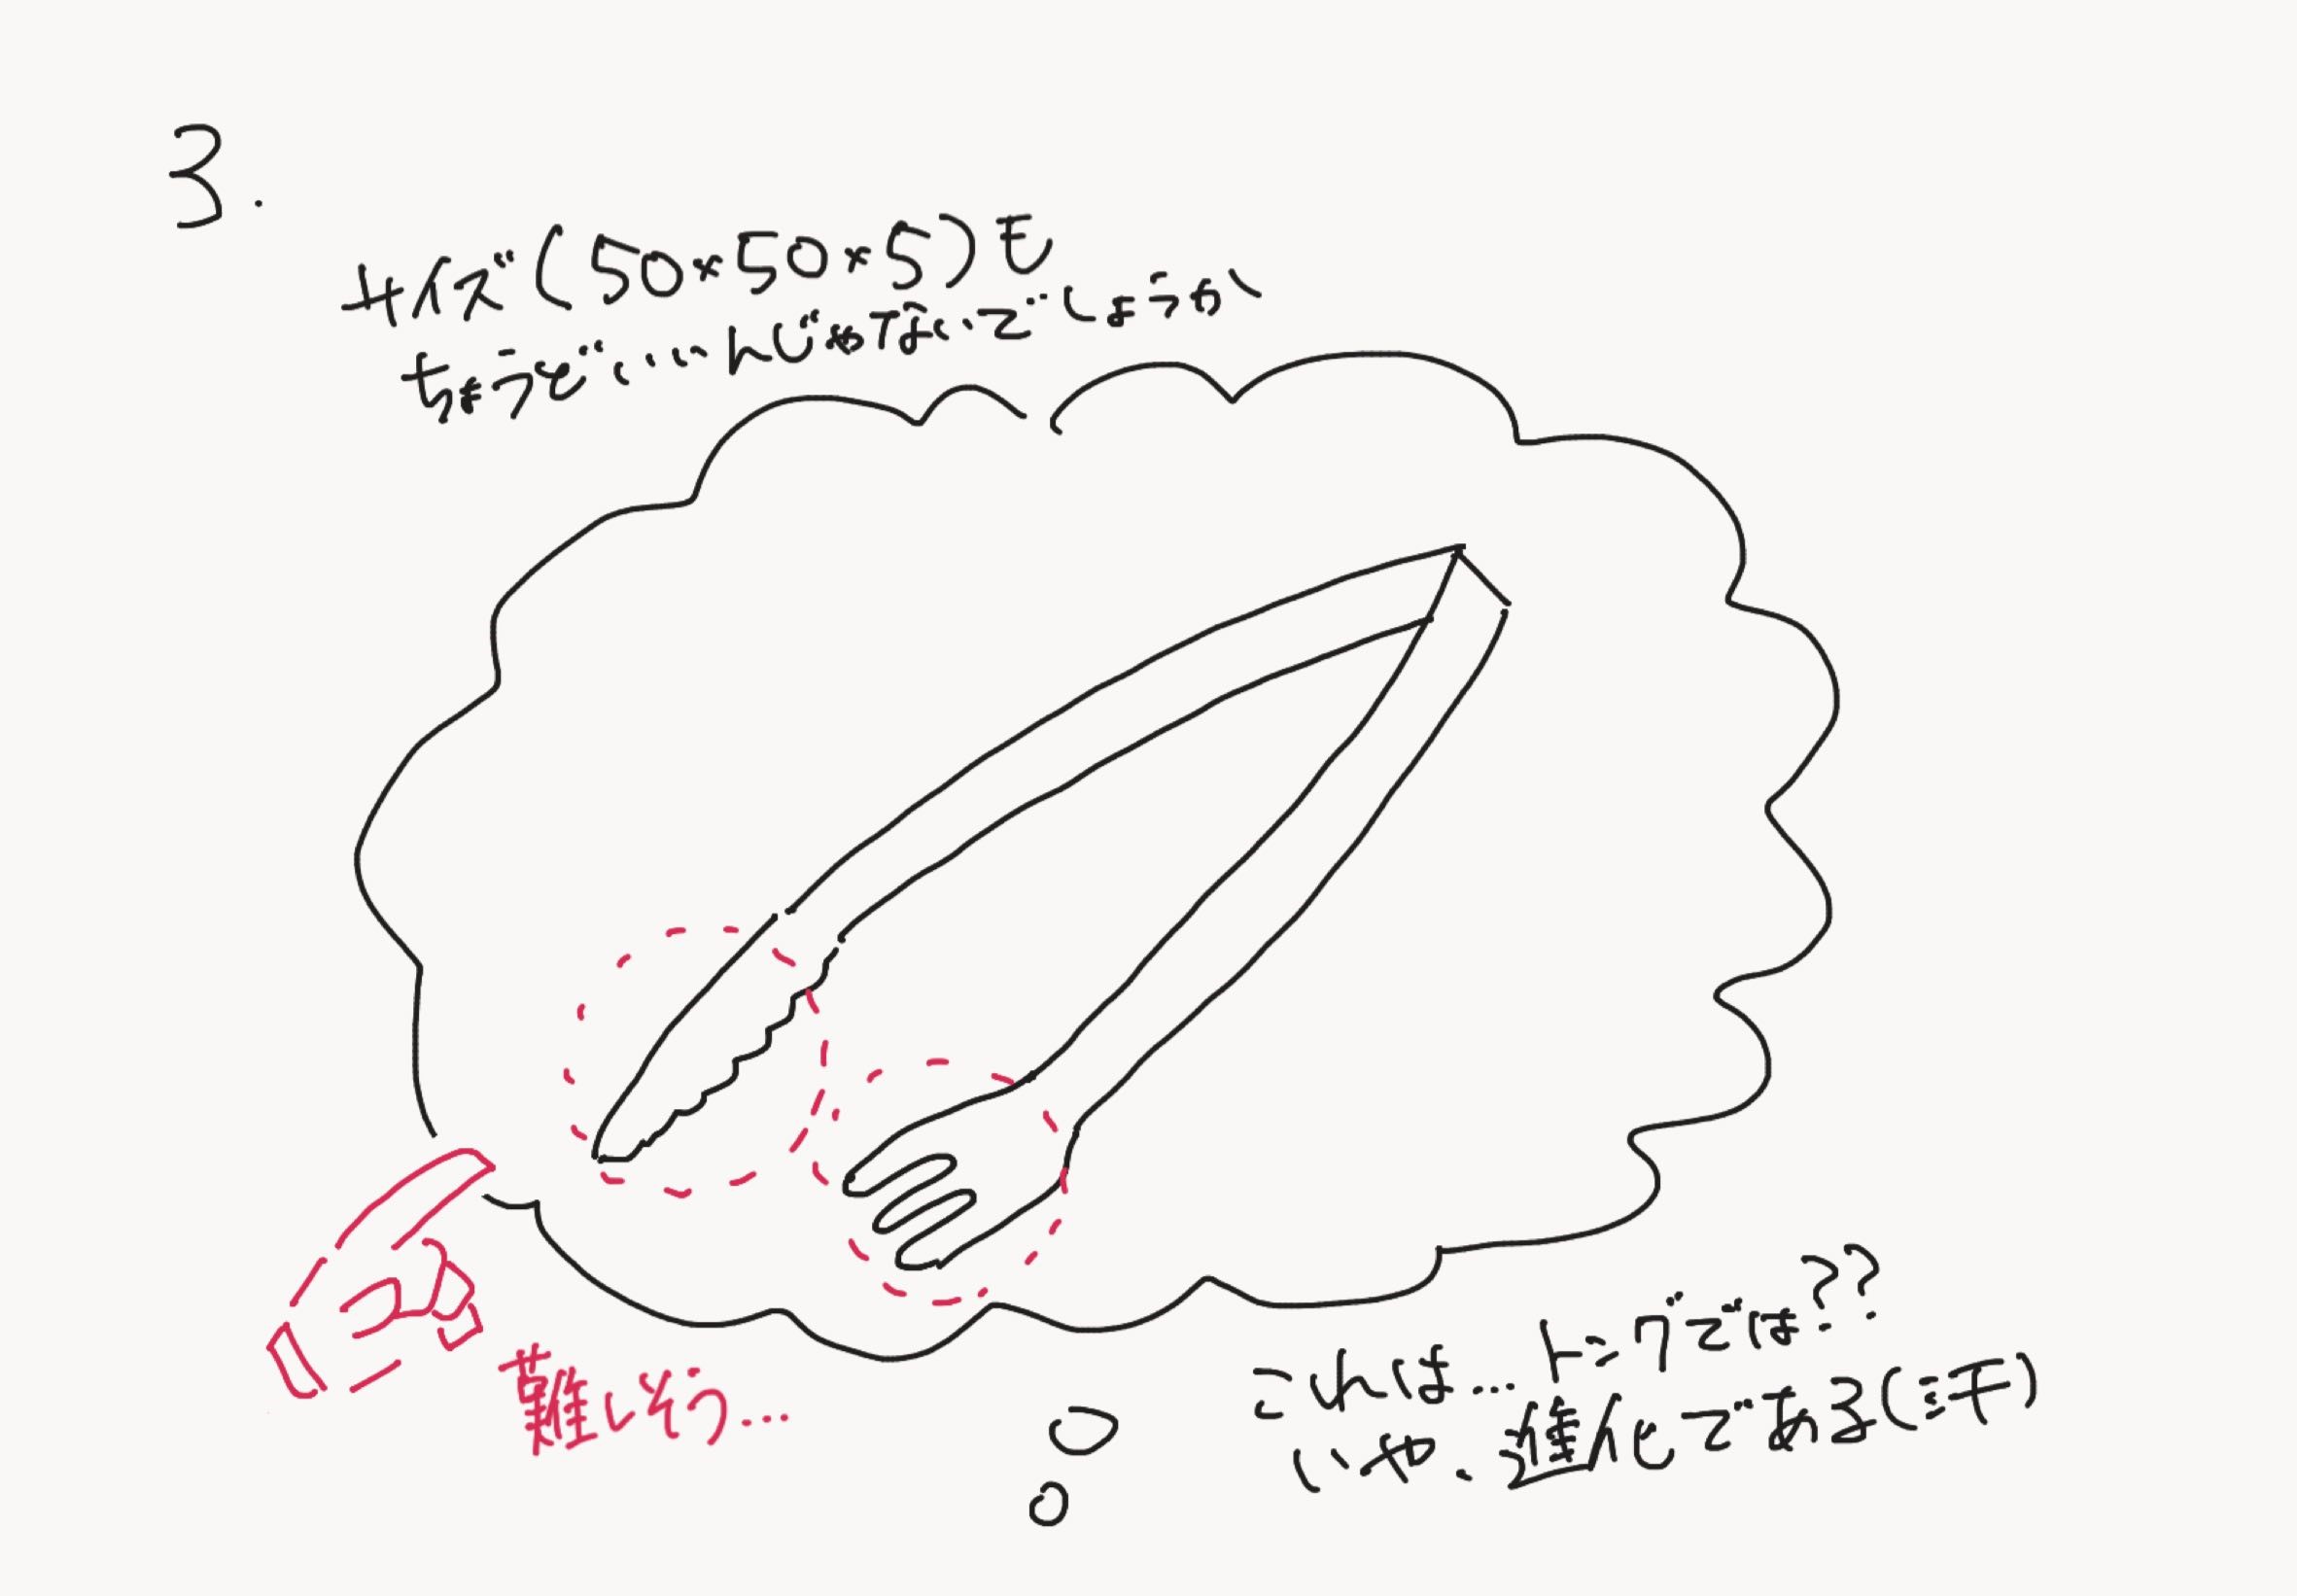 3.
サイズ(50×50×5)も
ちょうどいいんじゃないでしょうか
難しそう...
これは...トングでは??
いや、進化である(汗)